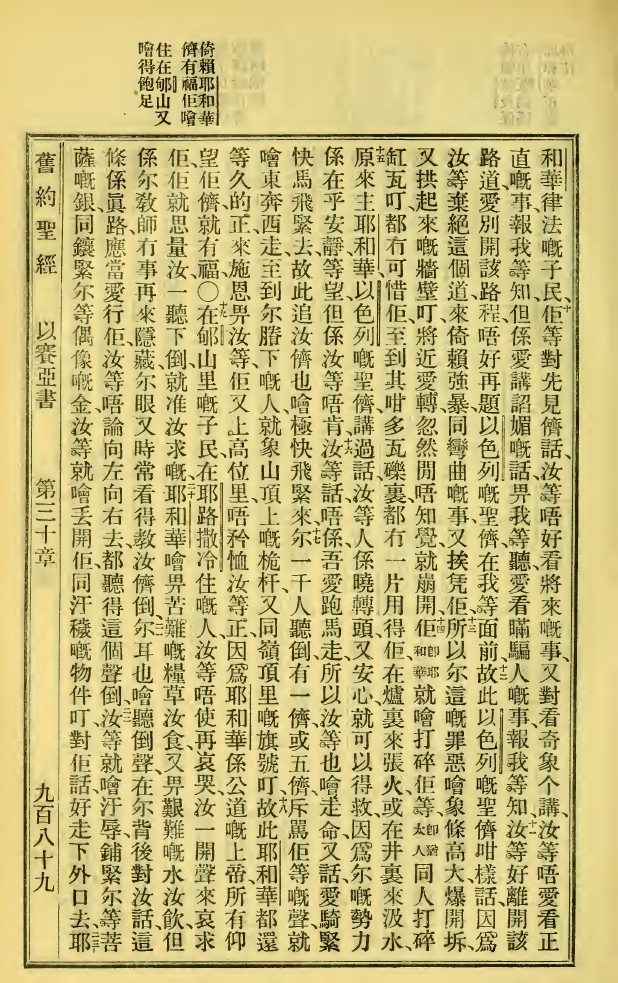 倚賴耶和華
儕有福佢噲
住在郇山又
噲得飽足
和華律法嘅子民、十佢等對先見儕話、汝等唔好看將來嘅事、又對看奇象个講、汝等唔愛看正
直嘅事報我等知、但係愛講諂媚嘅話畀我等聽、愛看瞞騙人嘅事報我等知、十一汝等好離開該
路道、愛別開該路程、唔好再題以色列嘅聖儕在我等面前、十二故此以色列嘅聖儕咁樣話、因爲
汝等棄絕這個道、來倚賴強暴同彎曲嘅事、又挨凭佢、十三所以尔這嘅罪惡、噲象條高大爆開坼、
又拱起來嘅牆壁、叮將近愛轉、忽然間唔知覺就崩開、十四佢卽耶和華就噲打碎佢等、卽猶太人同人打碎
缸瓦叮、都冇可惜、佢至到其咁多瓦礫裏、都冇一片用得佢在爐裏來張火、或在井裏來汲水、
十五原來主耶和華以色列嘅聖儕講過話、汝等人係曉轉頭、又安心、就可以得救、因爲尔嘅勢力
係在乎安靜等望、但係汝等唔肯、十六汝等話、唔係、吾愛跑馬走、所以汝等也噲走命、又話、愛騎緊
快馬飛緊去、故此追汝儕也噲極快飛緊來、十七尔一千人聽倒有一儕或五儕斥罵佢等嘅聲、就
噲東奔西走、至到尔賸下嘅人、就象山頂上嘅桅杆、又同嶺頂里嘅旗號叮、十八故此耶和華都還
等久的正來施恩畀汝等、佢又上高位里唔矜恤汝等、正因爲耶和華係公道嘅上帝、所有仰
望佢儕、就有福、〇十九在郇山里嘅子民、在耶路撒冷住嘅人、汝等唔使再哀哭、汝一開聲來哀求
佢、佢就思量汝、一聽下倒、就准汝求嘅、二十耶和華噲畀苦難嘅糧草汝食、又畀艱難嘅水汝飲、但
係尔敎師冇事再來隱藏、尔眼又時常看得敎汝儕倒、二一尔耳也噲聽倒聲、在尔背後對汝話、這
條係眞路、應當愛行佢、汝等唔論向左向右去、都聽得這個聲倒、二二汝等就噲汙辱鋪緊尔等菩
薩嘅銀、同鑲緊尔等偶像嘅金、汝等就噲丟開佢、同汙穢嘅物件叮、對佢話、好走下外口去、二三耶
舊約聖經 以賽亞書 第三十章 九百八十九